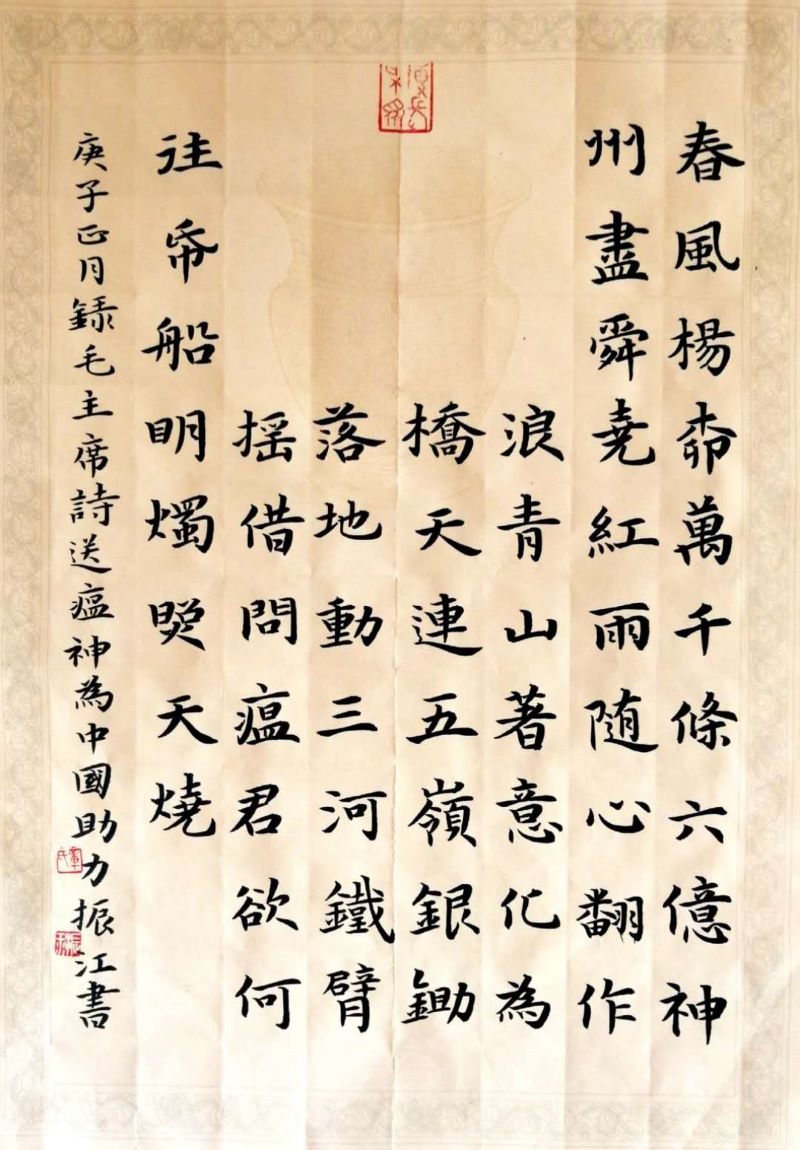 春風楊柳萬千條六億神
州盡舜堯紅雨随心翻作
浪青山著意化為
橋天連五嶺銀鋤
落地動三河鐵臂
摇借問瘟君欲何
往帋船明燭照天燒
庚子正月録毛主席詩送瘟神為中國助力振江書